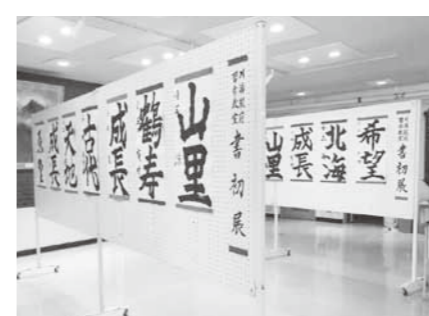 書初展
山里
鶴寿
成長
古代
天地
成長
希望
書初展
希望
北海
成長
山里